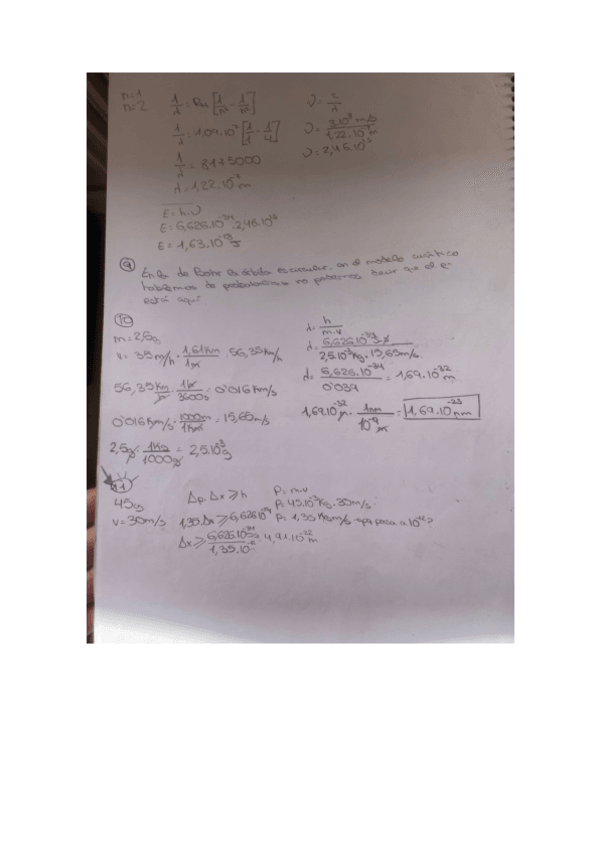 n=1
n=2
1/λ = RH [1/n² - 1/n²]
1/λ = 1,09·10⁷ [1/1 - 1/4]
1/λ = 8175000
λ = 1,22·10⁻⁷ m
ν = c/λ
ν = 3·10⁸ m/s / 1,22·10⁻⁷ m
ν = 2,46·10¹⁵
E = h·ν
E = 6,626·10⁻³⁴ · 2,46·10¹⁵
E = 1,63·10⁻¹⁸ J
9
En la de Bohr la órbita es circular. en el modelo cuántico
hablamos de probabilidad no podemos decir que el e⁻
está aquí
10
m = 2,5g
v = 35 m/h · 1,61Km/1m = 56,35Km/h
56,35 Km/h · 1h/3600s = 0'016 Km/s
0'016 Km/s · 1000m/1Km = 15,65m/s
2,5g · 1Kg/1000g = 2,5·10⁻³g
λ = h/m·v
λ = 6,626·10⁻³⁴ / 2,5·10⁻³Kg · 15,65m/s
λ = 6,626·10⁻³⁴ / 0'039 = 1,69·10⁻³²
1,69·10⁻³² m · 1nm/10⁻⁹m = 1,69·10⁻²³ nm
11
45g
v = 30m/s
Δp·Δx ≥ h
1,35·Δx ≥ 6,626·10⁻³⁴
Δx ≥ 6,626·10⁻³⁴ / 1,35·10 = 4,91·10⁻²² m
P = m·v
P = 45·10⁻³Kg · 30m/s
P = 1,35 Kg m/s pasa a 10⁻¹²?